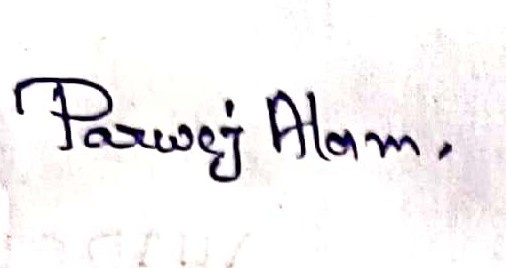 Parwej Alam.